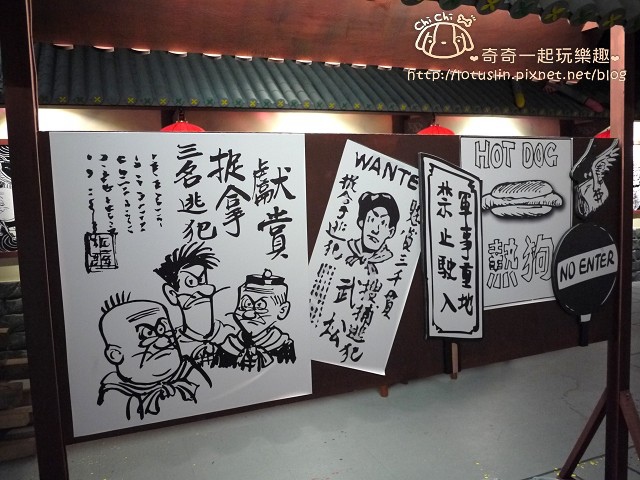 ChiChi
奇奇一起玩樂趣
http://lotuslin.pixnet.net/blog
獻賞
捉拿
三名逃犯
WANTE
懸賞三千貫
搜捕逃犯
武松
捉拿逃犯
軍事重地
禁止駛入
HOT DOG
熱狗
NO ENTER